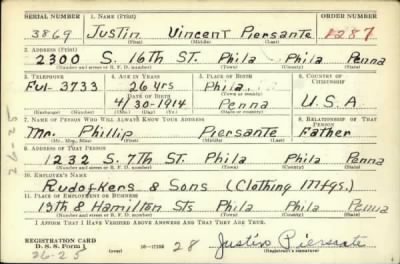 SERIAL NUMBER 1. NAME (Print) ORDER NUMBER
3869 Justin Vincent Piersante 1287
(First) (Middle) (Last)
2. ADDRESS (Print)
2300 S. 16th St. Phila Phila Penna
(Number and street or R. F. D. number) (Town) (County) (State)
3. TELEPHONE 4. AGE IN YEARS 5. PLACE OF BIRTH 6. COUNTRY OF CITIZENSHIP
Ful-3733 26 yrs Phila.
DATE OF BIRTH (Town or county)
4/30-1914 Penna U.S.A
(Exchange) (Number) (Mo.) (Day) (Yr.) (State or country)
7. NAME OF PERSON WHO WILL ALWAYS KNOW YOUR ADDRESS 8. RELATIONSHIP OF THAT PERSON
Mr. Phillip Piersante Father
(Mr., Mrs., Miss) (First) (Middle) (Last)
9. ADDRESS OF THAT PERSON
1232 S. 7th St. Phila Phila Penna
(Number and street or R. F. D. number) (Town) (County) (State)
10. EMPLOYER'S NAME
Rudofkers & Sons (Clothing Mfgs.)
11. PLACE OF EMPLOYMENT OR BUSINESS
13th & Hamilton Sts Phila Phila Penna
(Number and street or R. F. D. number) (Town) (County) (State)
I AFFIRM THAT I HAVE VERIFIED ABOVE ANSWERS AND THAT THEY ARE TRUE.
REGISTRATION CARD
D. S. S. Form 1 28 Justin Piersate
26-25 (Registrant's signature)
26-25